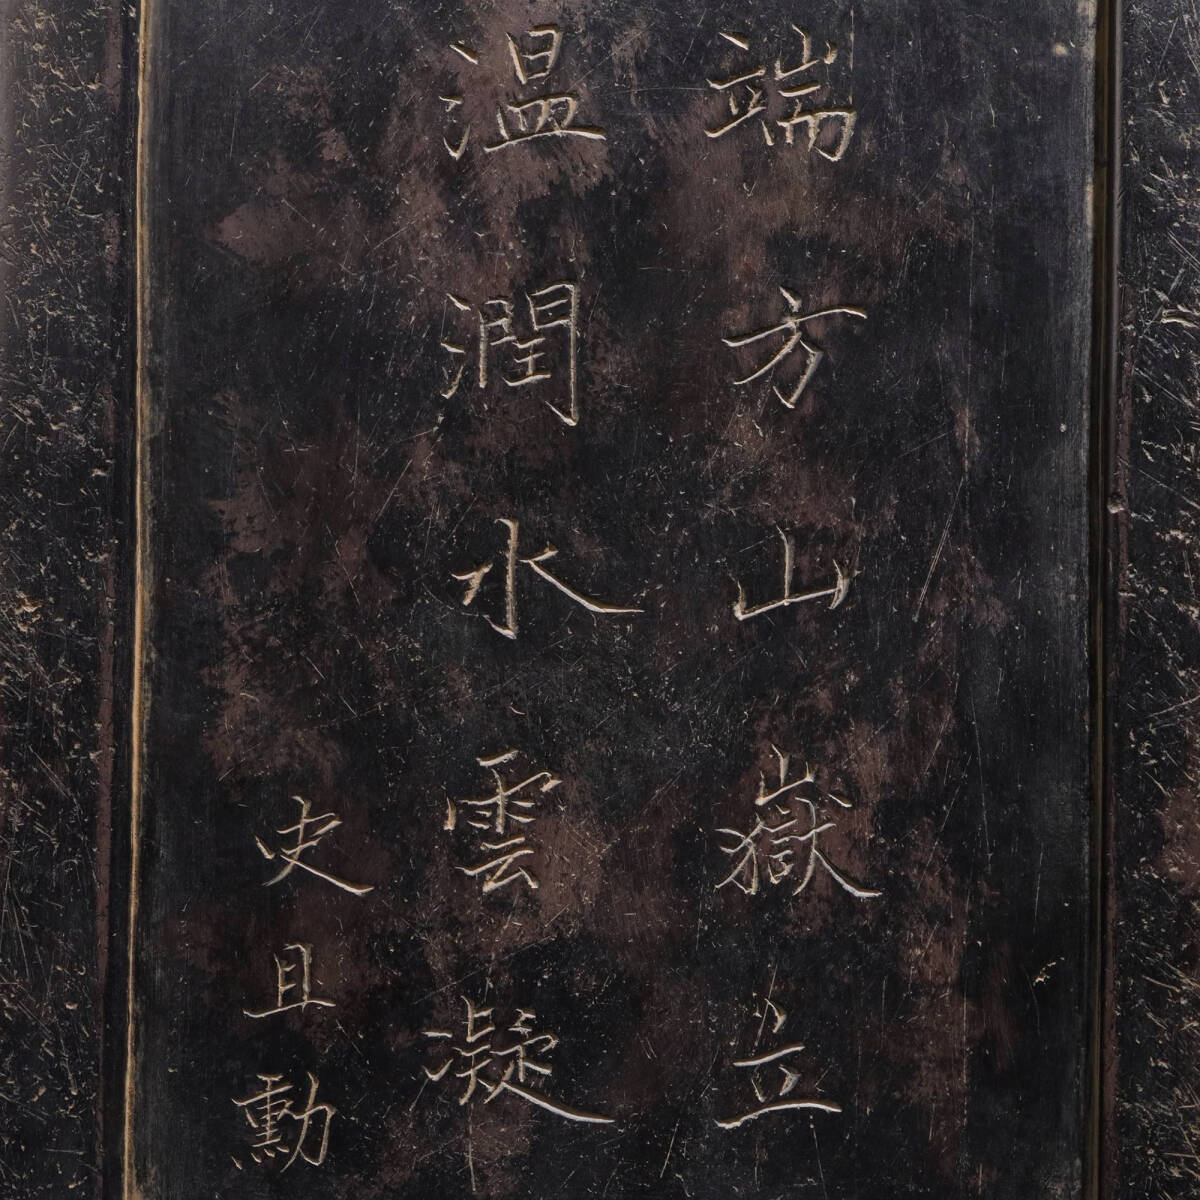 端方山嶽立
溫潤水雲凝
史且勳